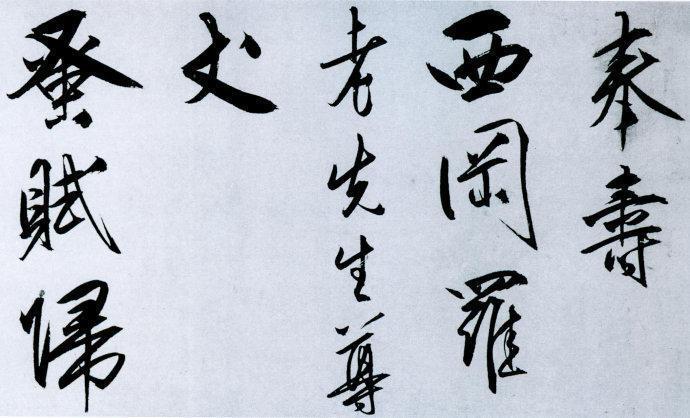 奉壽
西岡羅
老先生尊
丈
蚤賦歸